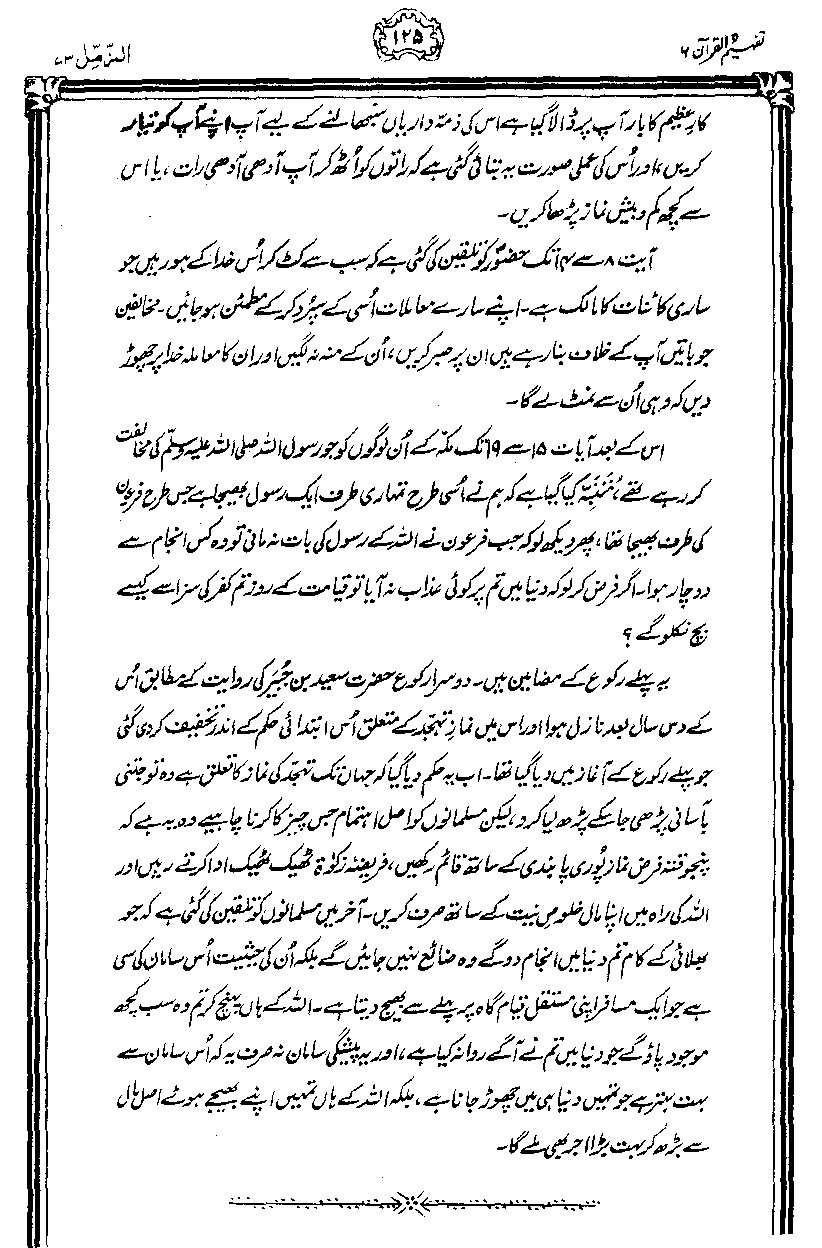 تفہیم القرآن ۶
۱۲۵
المزّمّل ۷۳
کارِ عظیم کا بار آپ پر ڈالا گیا ہے اس کی ذمہ داریاں سنبھالنے کے لیے آپ اپنے آپ کو تیار
کریں، اور اُس کی عملی صورت یہ بتائی گئی ہے کہ راتوں کو اُٹھ کر آپ آدھی آدھی رات، یا اس
سے کچھ کم و بیش نماز پڑھا کریں۔
آیت ۸ سے ۱۴ تک حضورؐ کو تلقین کی گئی ہے کہ سب سے کٹ کر اُس خدا کے ہو رہیں جو
ساری کائنات کا مالک ہے۔ اپنے سارے معاملات اُسی کے سپُرد کر کے مطمئن ہو جائیں۔ مخالفین
جو باتیں آپ کے خلاف بنا رہے ہیں ان پر صبر کریں، اُن کے منہ نہ لگیں اور ان کا معاملہ خدا پر چھوڑ
دیں کہ وہی اُن سے نمٹ لے گا۔
اس کے بعد آیات ۱۵ سے ۱۹ تک مکّہ کے اُن لوگوں کو جو رسول اللہ صلی اللہ علیہ وسلّم کی مخالفت
کر رہے تھے، مُتَنَبِّہ کیا گیا ہے کہ ہم نے اُسی طرح تمہاری طرف ایک رسول بھیجا ہے جس طرح فرعون
کی طرف بھیجا تھا، پھر دیکھ لو کہ جب فرعون نے اللہ کے رسول کی بات نہ مانی تو وہ کس انجام سے
دوچار ہوا۔ اگر فرض کر لو کہ دنیا میں تم پر کوئی عذاب نہ آیا تو قیامت کے روز تم کفر کی سزا سے کیسے
بچ نکلو گے ؟
یہ پہلے رکوع کے مضامین ہیں۔ دوسرا رکوع حضرت سعید بن جُبَیر کی روایت کے مطابق اُس
کے دس سال بعد نازل ہوا اور اس میں نمازِ تہجّد کے متعلق اُس ابتدائی حکم کے اندر تخفیف کر دی گئی
جو پہلے رکوع کے آغاز میں دیا گیا تھا۔ اب یہ حکم دیا گیا کہ جہاں تک تہجّد کی نماز کا تعلق ہے وہ تو جتنی
بآسانی پڑھی جا سکے پڑھ لیا کرو، لیکن مسلمانوں کو اصل اہتمام جس چیز کا کرنا چاہیے وہ یہ ہے کہ
پنجوقتہ فرض نماز پُوری پابندی کے ساتھ قائم رکھیں، فریضۂ زکوٰۃ ٹھیک ٹھیک ادا کرتے رہیں اور
اللہ کی راہ میں اپنا مال خلوصِ نیت کے ساتھ صرف کریں۔ آخر میں مسلمانوں کو تلقین کی گئی ہے کہ جو
بھلائی کے کام تم دنیا میں انجام دو گے وہ ضائع نہیں جائیں گے بلکہ اُن کی حیثیت اُس سامان کی سی
ہے جو ایک مسافر اپنی مستقل قیام گاہ پر پہلے سے بھیج دیتا ہے۔ اللہ کے ہاں پہنچ کر تم وہ سب کچھ
موجود پاؤ گے جو دنیا میں تم نے آگے روانہ کیا ہے، اور یہ پیشگی سامان نہ صرف یہ کہ اُس سامان سے
بہت بہتر ہے جو تمہیں دنیا ہی میں چھوڑ جانا ہے، بلکہ اللہ کے ہاں تمہیں اپنے بھیجے ہوئے اصل مال
سے بڑھ کر بہت بڑا اجر بھی ملے گا۔